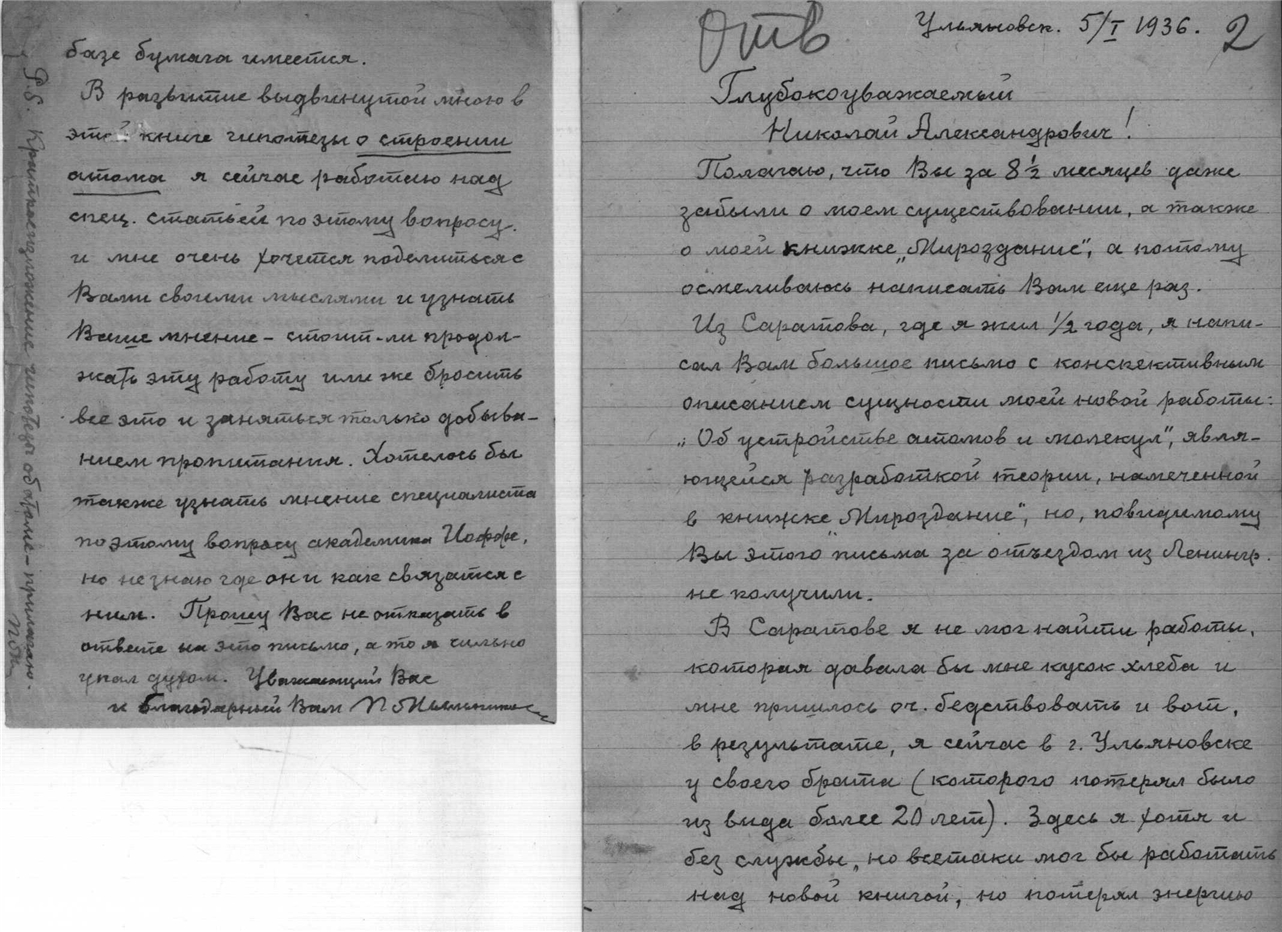 базе бумага имеется.
В развитие выдвинутой мною в
этой книге гипотезы о строении
атома я сейчас работаю над
спец. статьей по этому вопросу.
и мне очень хочется поделиться с
Вами своими мыслями и узнать
Ваше мнение – стоит-ли продол-
жать эту работу или же бросить
все это и заняться только добыва-
нием пропитания. Хотелось бы
также узнать мнение специалиста
по этому вопросу академика Иоффе,
но не знаю где он и как связатся с
ним. Прошу Вас не отказать в
ответе на это письмо, а то я сильно
упал духом. Уважающий Вас
и благодарный Вам
P.S. Краткое изложение гипотезы об атоме – прилагаю.
Отв
Ульяновск. 5/I 1936. 2
Глубокоуважаемый
Николай Александрович!
Полагаю, что Вы за 8 ½ месяцев даже
забыли о моем существовании, а также
о моей книжке „Мироздание“, а потому
осмеливаюсь написать Вам еще раз.
Из Саратова, где я жил ½ года, я напи-
сал Вам большое письмо с конспективным
описанием сущности моей новой работы:
„Об устройстве атомов и молекул“, явля-
ющейся разработкой теории, намеченной
в книжке „Мироздание“, но, повидимому
Вы этого письма за отъездом из Ленингр.
не получили.
В Саратове я не мог найти работы,
которая давала бы мне кусок хлеба и
мне пришлось оч. бедствовать и вот,
в результате, я сейчас в г. Ульяновске
у своего брата (которого потерял было
из вида более 20 лет). Здесь я хотя и
без службы, но всетаки мог бы работать
над новой книгой, но потерял энергию